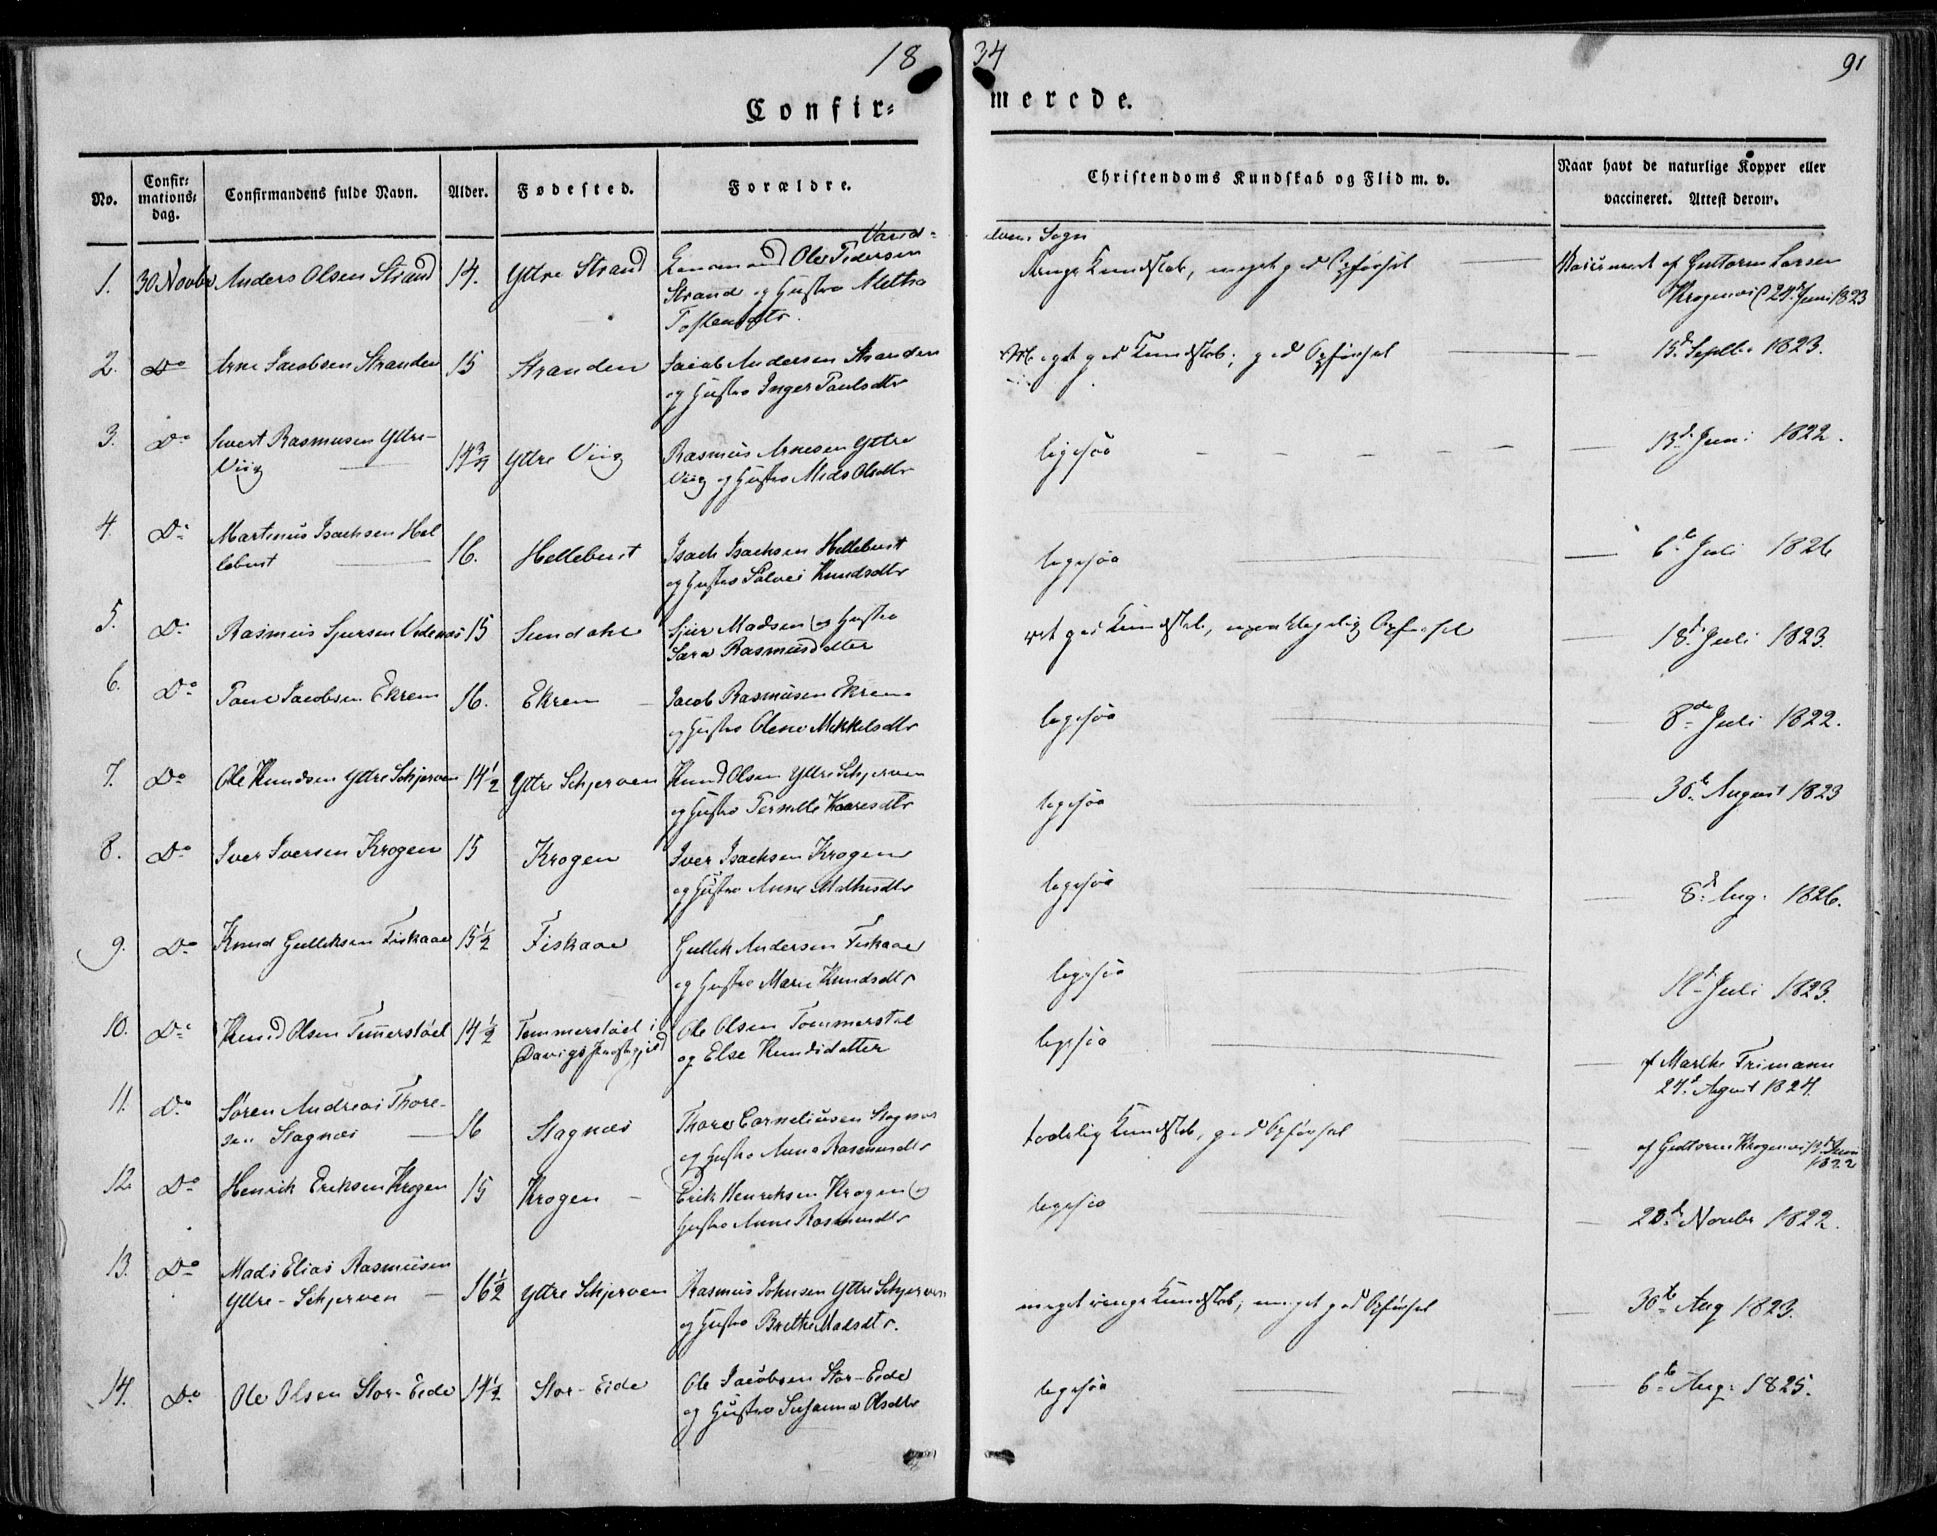 1834
91
Confir=merede.
No.
Confir=
mations=
dag.
Confirmandens fulde Navn.
Alder.
Fødested.
Forældre.
Christendoms Kundskab og Flid m. v.
Naar havt de naturlige Kopper eller
vaccineret. Attest derom.
Vanel=
elvens Sogn
1. 30 Novbr Anders Olsen Strand 14. Yttre Strand Ole Pedersen
Strand og Hustro Metha
Tostensdtr.
Kundskab, meget god Opførsel Vaccineret af Guttorm Larsen
Krogenæs 24 Juni 1823
2. Do Arne Jacobsen Stranden 15 Stranden Jacob Andersen Stranden
og Hustro Inger Paulsdtr
Meget god Kundskab, god Opførsel — 15d Septbr 1823.
3. Do Sivert Rasmusen Yttre-
Viig 14¾ Yttre Viig Rasmus Arnesen Yttre
Viig og Hustro Mads Olsdtr
ligesaa — 13d Juni 1822.
4. Do Martinus Isachsen Hel
lebust 16. Hellebust Isach Isachsen Hellebust
og Hustro Solvei Knudsdtr
ligesaa — 6te Juli 1826
5. Do Rasmus Sjursen Vedenæs 15 Sundahl Sjur Madsen og Hustro
Sara Rasmusdatter
ret god Kundskab, upaaklagelig Opførsel — 18d Juli 1823.
6. Do Paul Jacobsen Ekrem 16. Ekrem Jacob Rasmusen Ekrem
og Hustro Olene Mikkelsdtr
ligesaa — 8de Juli 1822.
7. Do Ole Knudsen Yttre Schjerven 14½ Yttre Schjerven Knud Olsen Yttre Schjerven
og Hustro Pernille Kaaresdtr
ligesaa — 30te August 1823
8. Do Iver Iversen Krogen 15 Krogen Iver Isachsen Krogen
og Hustro Anne Mathisdtr
ligesaa — 8d Aug. 1826.
9. Do Knud Gulliksen Fiskaae 15½ Fiskaae Gullik Andersen Fiskaae
og Hustro Marie Knudsdtr
ligesaa 18d Juli 1823.
10. Do Knud Olsen Tømerstøel 14½ Tømmerstøel i
Davigs Præstegjeld Ole Olsen Tommerstøl
og Else Knudsdatter
ligesaa — af Marthe Frimann
24d August 1824.
11. Do Søren Andreas Thore-
sen Stagnæs 16 Stagnæs Thore Corneliusen Stagnæs
og Hustro Anna Rasmusdtr
taalelig Kundskab, god Opførsel — af Guttorm Krogenæs 12 Juni
1822
12 Do Henrik Eriksen Krogen 15 Krogen Erik Henriksen Krogen og
Hustro Anne Rasmusdtr
ligesaa — 22d Novbr 1822.
13. Do Mads Elias Rasmusen
Yttre-Schjerven 16½ Yttre Schjerven Rasmus Johnsen Yttre Schjerven
og Hustro Brethe Madsdtr.
meget ringe Kundskab; meget god Opførsel — 30te Aug 1823.
14. Do Ole Olsen Stor-Eide 14½ Stor-Eide Ole Jacobsen Stor-Eide
og Hustro Susanna Olsdtr
ligesaa — 6te Aug: 1825.